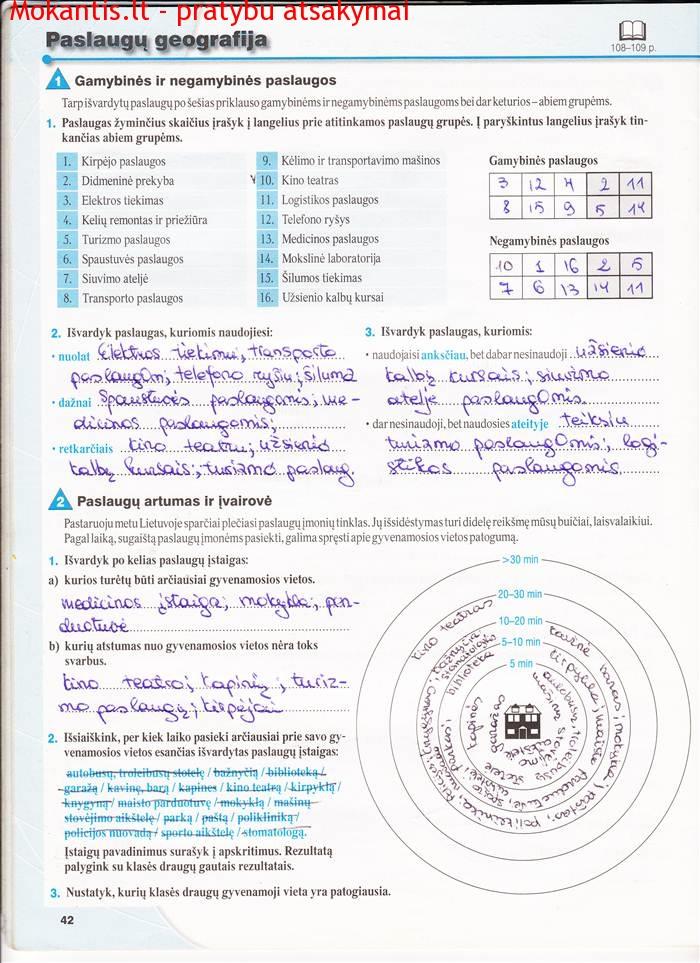 Mokantis.lt - pratybu atsakymai
Paslaugų geografija
108–109 p.
1 Gamybinės ir negamybinės paslaugos
Tarp išvardytų paslaugų po šešias priklauso gamybinėms ir negamybinėms paslaugoms bei dar keturios – abiem grupėms.
1. Paslaugas žyminčius skaičius įrašyk į langelius prie atitinkamos paslaugų grupės. Į paryškintus langelius įrašyk tin-
kančias abiem grupėms.
1. Kirpėjo paslaugos
2. Didmeninė prekyba
3. Elektros tiekimas
4. Kelių remontas ir priežiūra
5. Turizmo paslaugos
6. Spaustuvės paslaugos
7. Siuvimo ateljė
8. Transporto paslaugos
9. Kėlimo ir transportavimo mašinos
10. Kino teatras
11. Logistikos paslaugos
12. Telefono ryšys
13. Medicinos paslaugos
14. Mokslinė laboratorija
15. Šilumos tiekimas
16. Užsienio kalbų kursai
Gamybinės paslaugos
3 12 4 2 11
8 15 9 5 14
Negamybinės paslaugos
10 1 16 2 5
7 6 13 14 11
2. Išvardyk paslaugas, kuriomis naudojiesi:
• nuolat Elektros tiekimu, transporto
paslaugom; telefono ryšiu; šiluma
• dažnai Spaustuvės paslaugomis; me-
dicinos paslaugomis;
• retkarčiais kino teatru; užsienio
kalbų kursais; turizmo paslaug.
3. Išvardyk paslaugas, kuriomis:
• naudojaisi anksčiau, bet dabar nesinaudoji užsienio
kalbų kursais; siuvimo
ateljė paslaugomis.
• dar nesinaudoji, bet naudosies ateityje teiksiu
turizmo paslaugomis; logi-
stikos paslaugomis
2 Paslaugų artumas ir įvairovė
Pastaruoju metu Lietuvoje sparčiai plečiasi paslaugų įmonių tinklas. Jų išsidėstymas turi didelę reikšmę mūsų buičiai, laisvalaikiui.
Pagal laiką, sugaištą paslaugų įmonėms pasiekti, galima spręsti apie gyvenamosios vietos patogumą.
1. Išvardyk po kelias paslaugų įstaigas:
a) kurios turėtų būti arčiausiai gyvenamosios vietos.
medicinos įstaiga; mokykla; par-
duotuvė
b) kurių atstumas nuo gyvenamosios vietos nėra toks
svarbus.
kino teatro; kapinių; turiz-
mo paslaugų; kirpėjai
2. Išsiaiškink, per kiek laiko pasieki arčiausiai prie savo gy-
venamosios vietos esančias išvardytas paslaugų įstaigas:
autobusų, troleibusų stotelę / bažnyčią / biblioteką /
garažą / kavinę, barą / kapines / kino teatrą / kirpyklą /
knygyną / maisto parduotuvę / mokyklą / mašinų
stovėjimo aikštelę / parką / paštą / polikliniką /
policijos nuovadą / sporto aikštelę / stomatologą.
Įstaigų pavadinimus surašyk į apskritimus. Rezultatą
palygink su klasės draugų gautais rezultatais.
3. Nustatyk, kurių klasės draugų gyvenamoji vieta yra patogiausia.
>30 min
20–30 min
10–20 min
5–10 min
5 min
kino teatras
bažnyčia
stomatologas
biblioteka
kapinės
garažas
kavinė baras; mokykla; paštas; poliklinika;
kirpykla; maisto parduotuvė;
autobusų, troleibusų stotelė
mašinų stovėjimo aikštelė
42